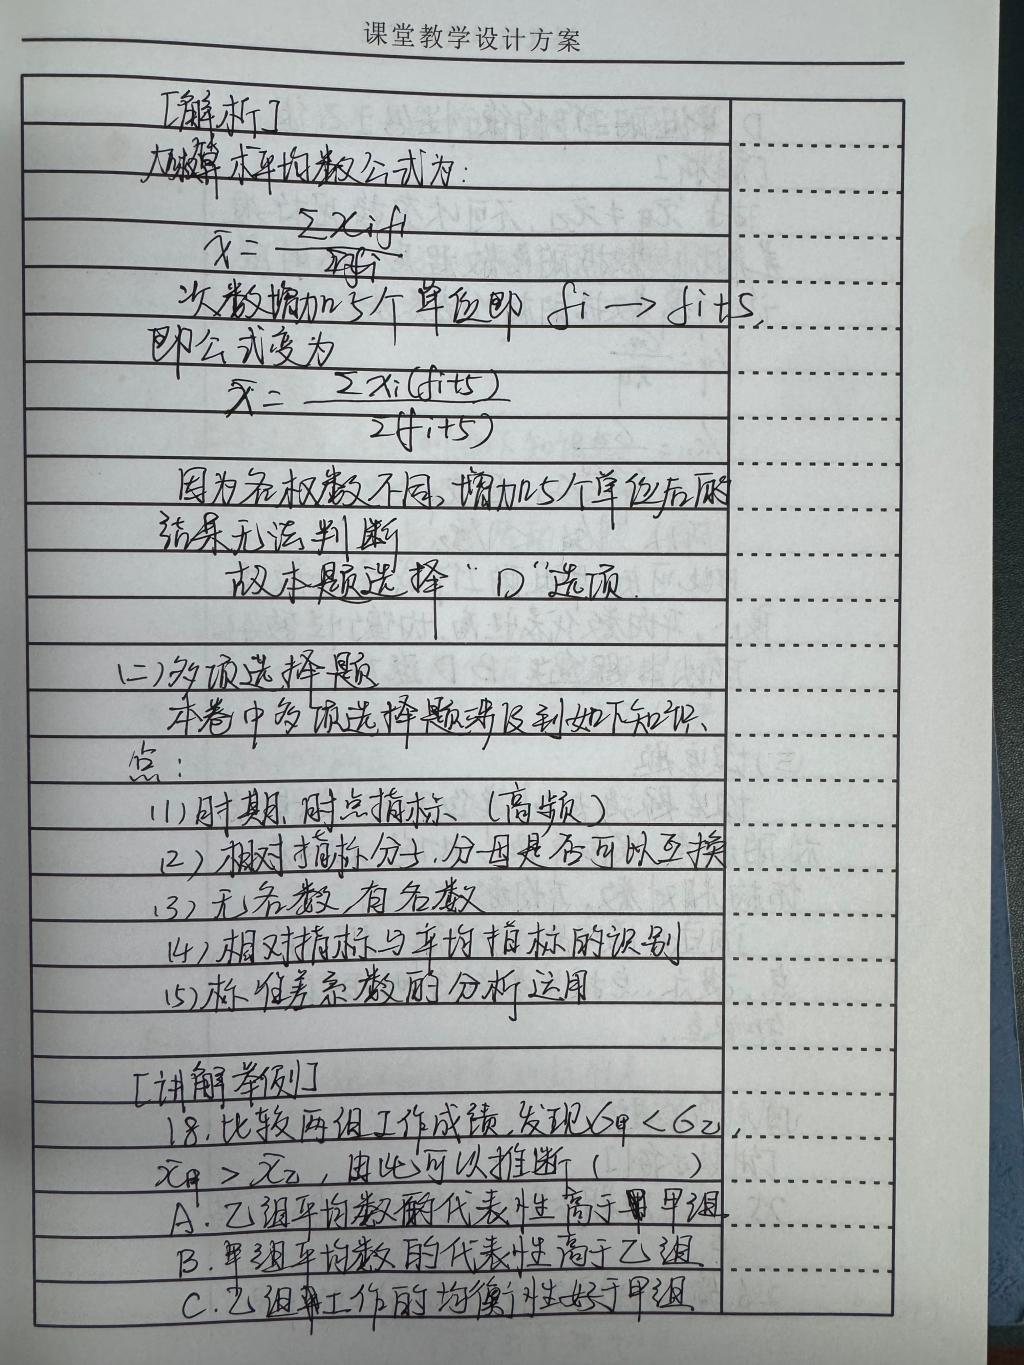 课堂教学设计方案
[解析]
加权算术平均数公式为:
x̄ = Σxifi / Σfi
次数增加5个单位即 fi → fi+5,
即公式变为
x̄ = Σxi(fi+5) / Σ(fi+5)
因为各权数不同,增加5个单位后的
结果无法判断
故本题选择“D”选项.
(二)多项选择题
本卷中多项选择题涉及到如下知识
点:
(1)时期、时点指标(高频)
(2)相对指标分子、分母是否可以互换
(3)无名数,有名数
(4)相对指标与平均指标的识别
(5)标准差系数的分析运用
[讲解举例]
18.比较两组工作成绩,发现σ甲<σ乙,
x̄甲>x̄乙,由此可以推断( )
A.乙组平均数的代表性高于甲组
B.甲组平均数的代表性高于乙组
C.乙组工作的均衡性好于甲组